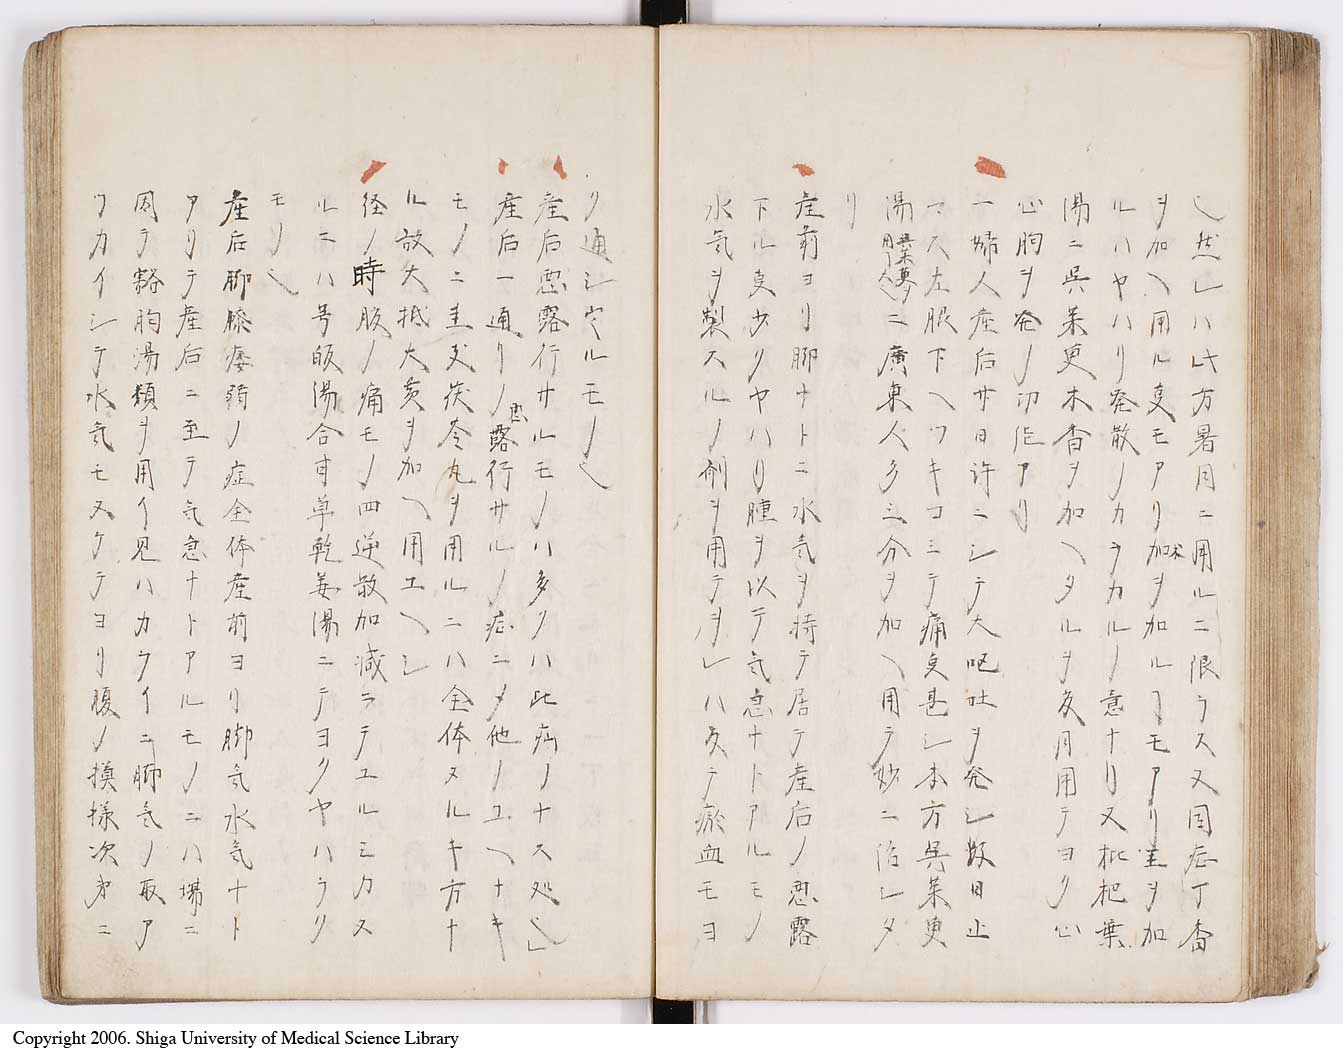 然レハ此方暑月ニ用ルニ限ラス又同症丁香
ヲ加ヘ用ル叓モアリ加ヲ加ルヿモアリ圭ヲ加
ルハヤハリ発散ノカラカルノ意ナリ又枇杷葉
湯ニ呉茱萸木香ヲ加ヘタルヲ夏月用テヨク心
心胸ヲ発ノ功能アリ
一婦人産后廿日許ニシテ大呕吐ヲ発シ数日止
マス左服下ヘツキコミテ痛叓甚シ本方呉茱萸
湯ニ廣東人多三分ヲ加ヘ用テ妙ニ治シタ
リ
産前ヨリ脚ナトニ水気ヲ持テ居テ産后ノ悪露
下ル叓少クヤハリ腫ヲ以テ気急ナトアルモノ
水気ヲ製スルノ剤ヲ用テヲレハ反テ瘀血モヨ
ク通シ安ルモノ也
産后悪露行サルモノハ多クハ此病ノナス処也
産后一通リノ悪露行サルノ症ニメ他ノユヘナキ
モノニ圭支茯苓丸ヲ用ルニハ全体ヌルキ方ナ
ル故大抵大黄ヲ加ヘ用エヘシ
径ノ時腹ノ痛モノ四逆散加減ラテユルミカヌ
ルニハ芍皈湯合甘草乾姜湯ニテヨクヤハラク
モノ也
産后脚膝痿弱ノ症全体産前ヨリ脚気水気ナト
アリテ産后ニ至テ気急ナトアルモノニハ塲ニ
因テ豁胸湯類ヲ用イ見ハカライニ脚気ノ取ア
ツカイシテ水気モヌケテヨリ腹ノ摸様次第ニ
Copyright 2006. Shiga University of Medical Science Library